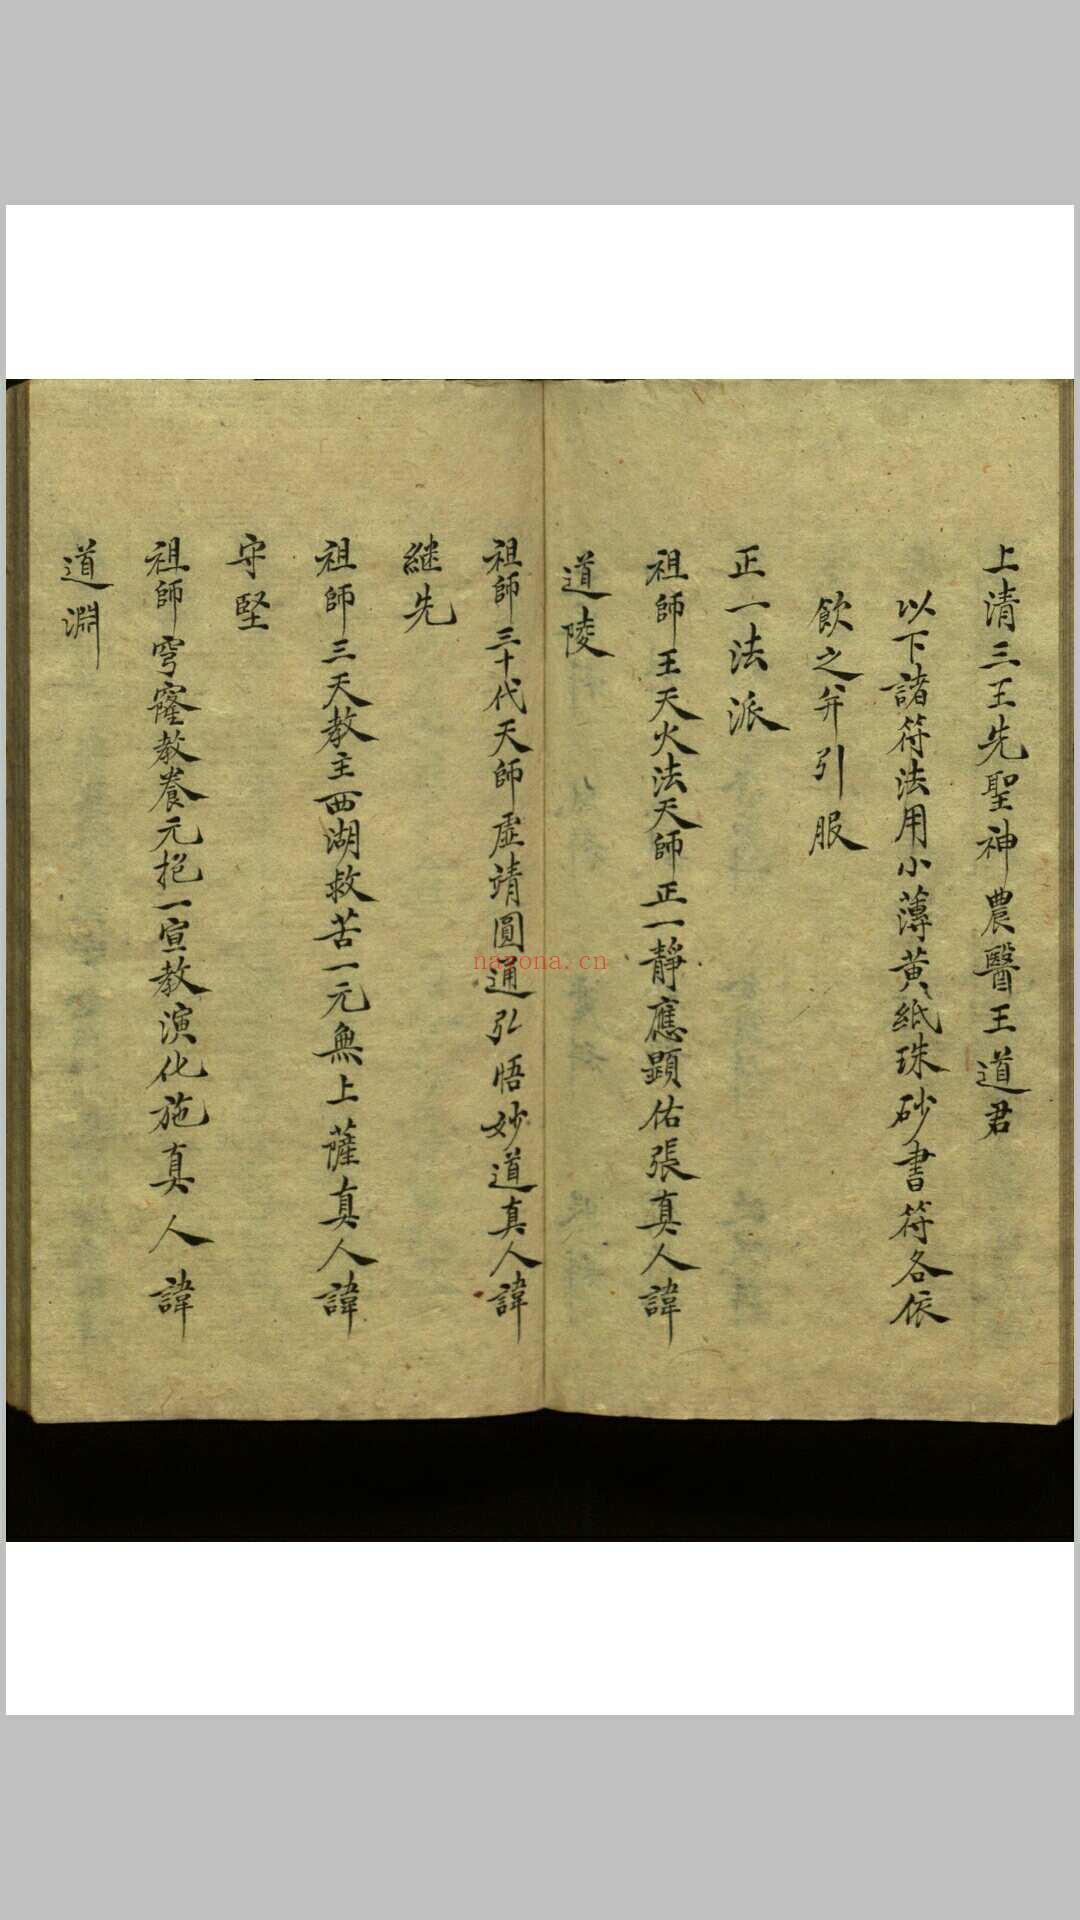 上清三王先聖神農醫王道君
以下諸符法用小薄黄紙珠砂書符各依
飲之并引服
正一法派
祖師王天火法天師正一靜應顕佑張真人諱
道陵
祖師三十代天師虛靖圓通弘悟妙道真人諱
継先
祖師三天教主西湖救苦一元無上薩真人諱
守堅
祖師穹窿教養元抱一宣教演化施真人諱
道淵
nayona.cn